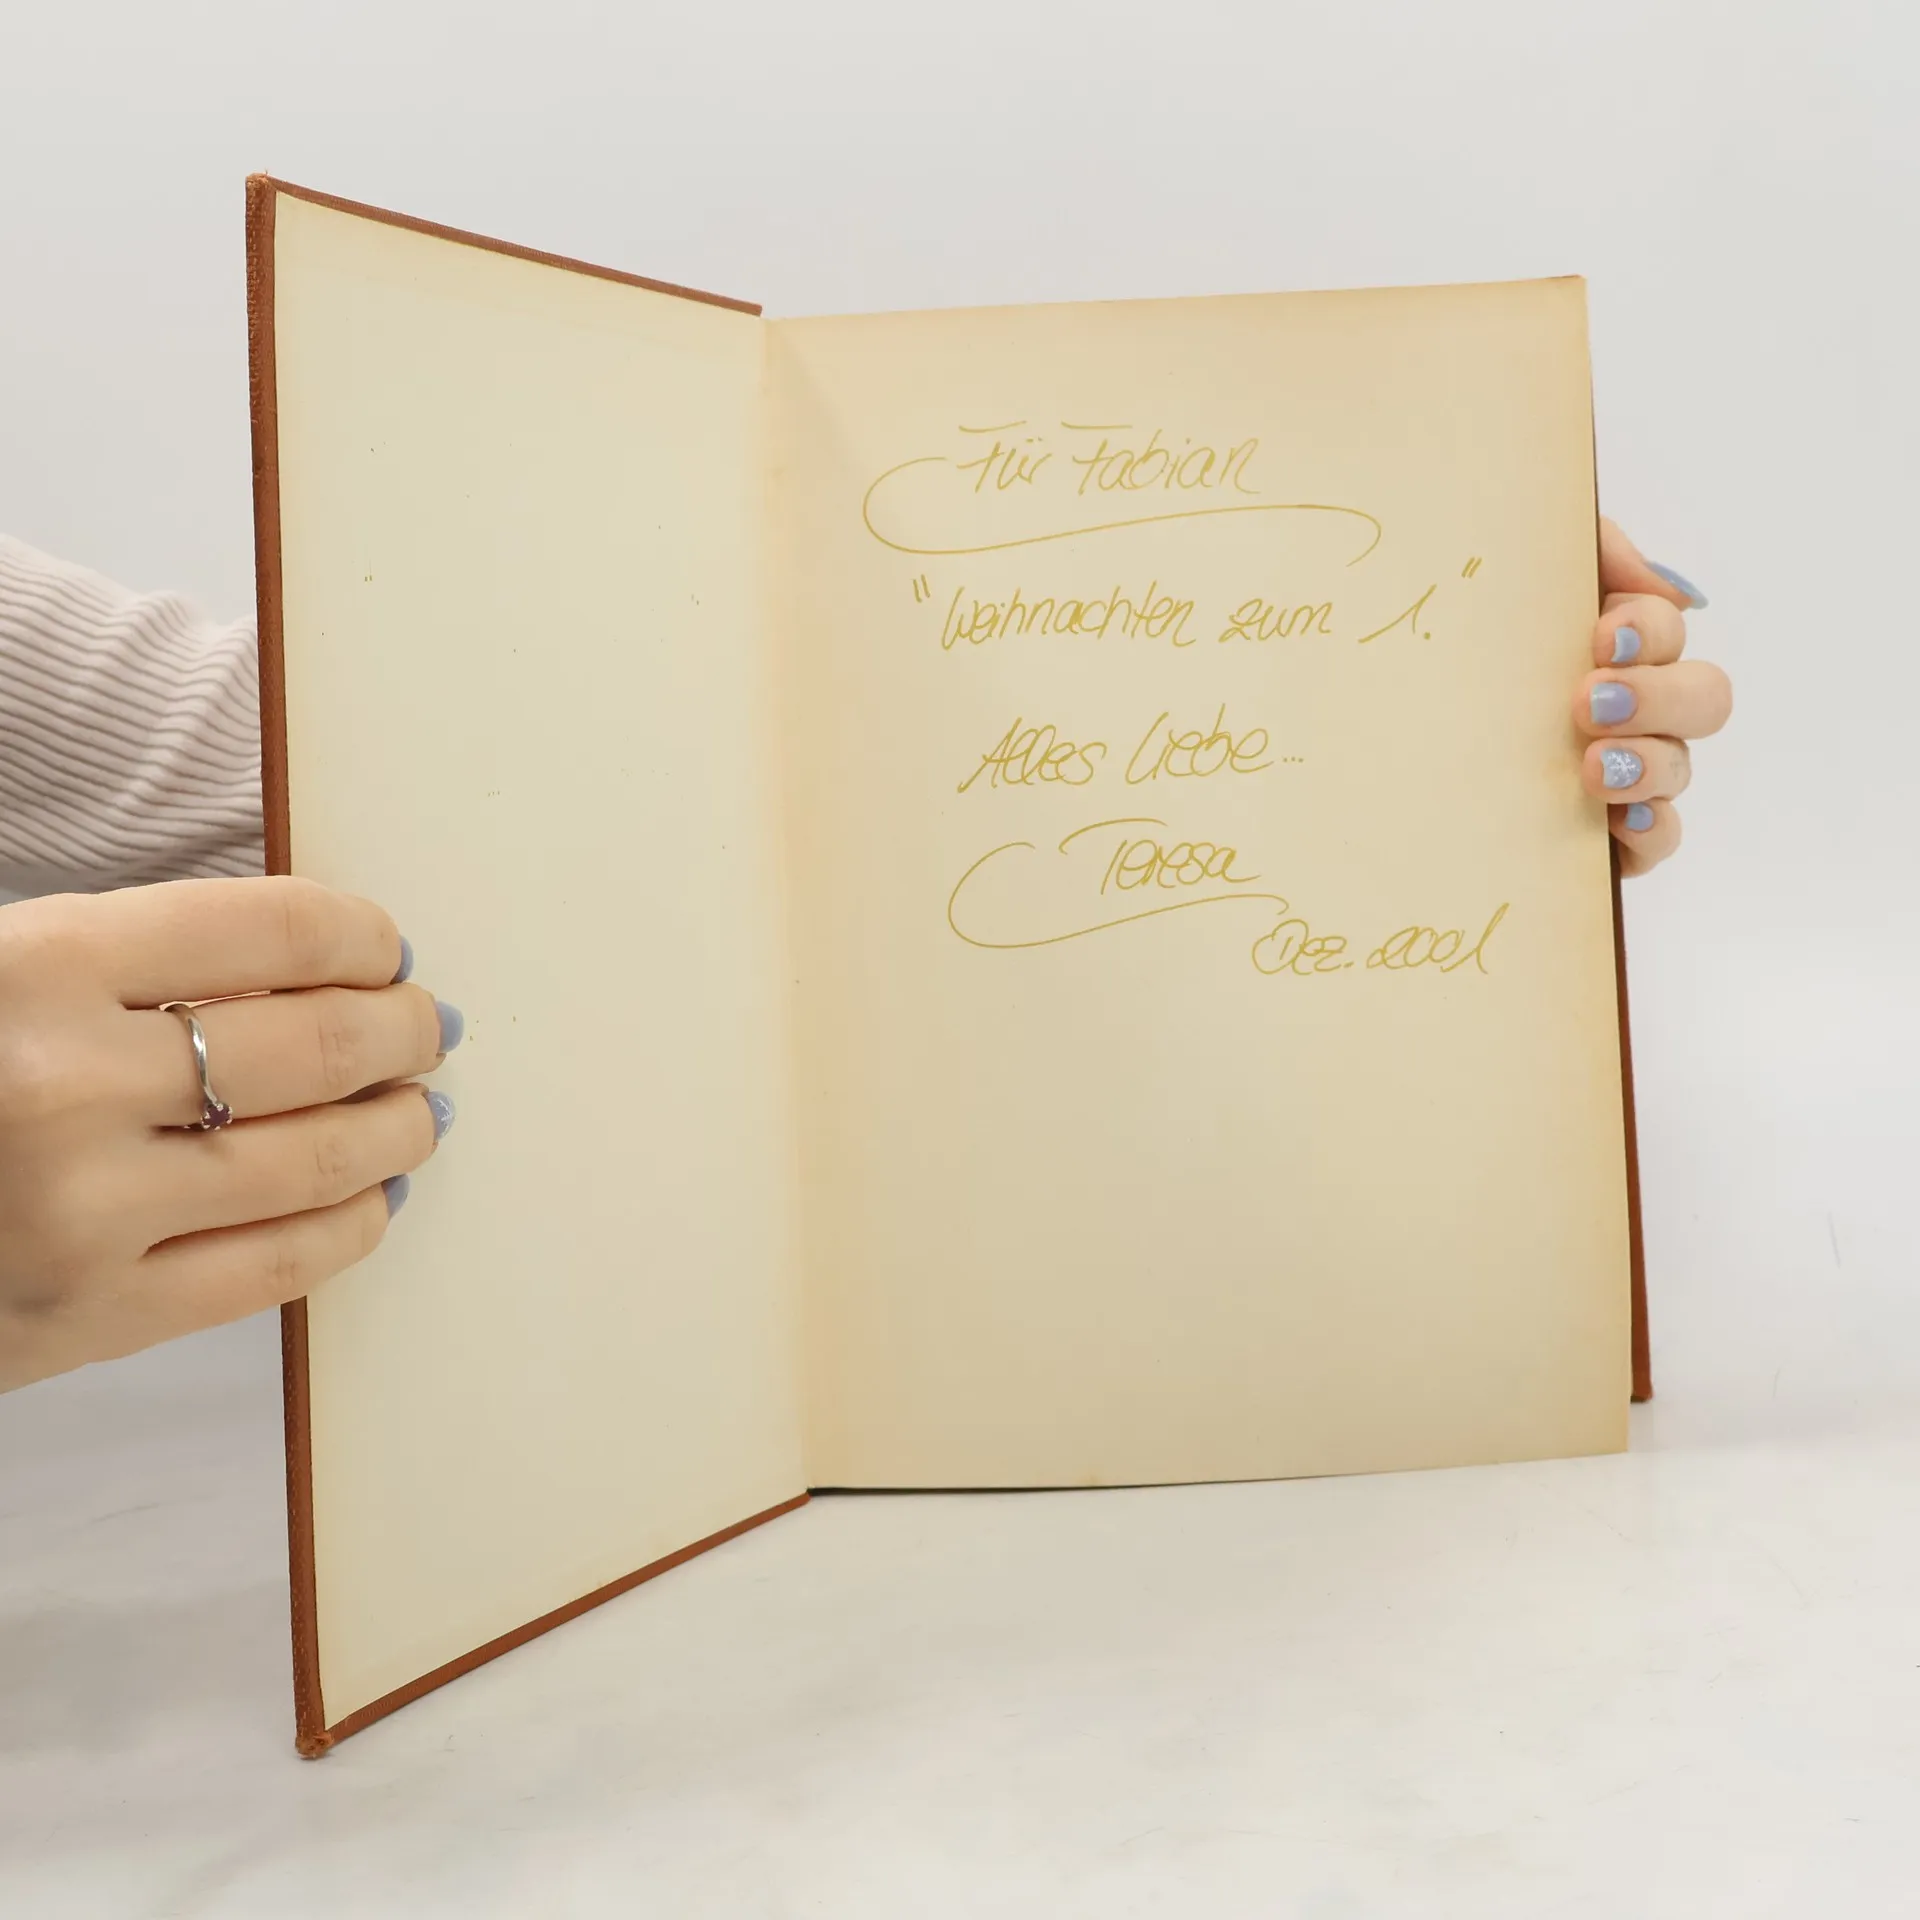 Für Fabian
"Weihnachten zum 1."
Alles Liebe...
Teresa
Dez. 2001